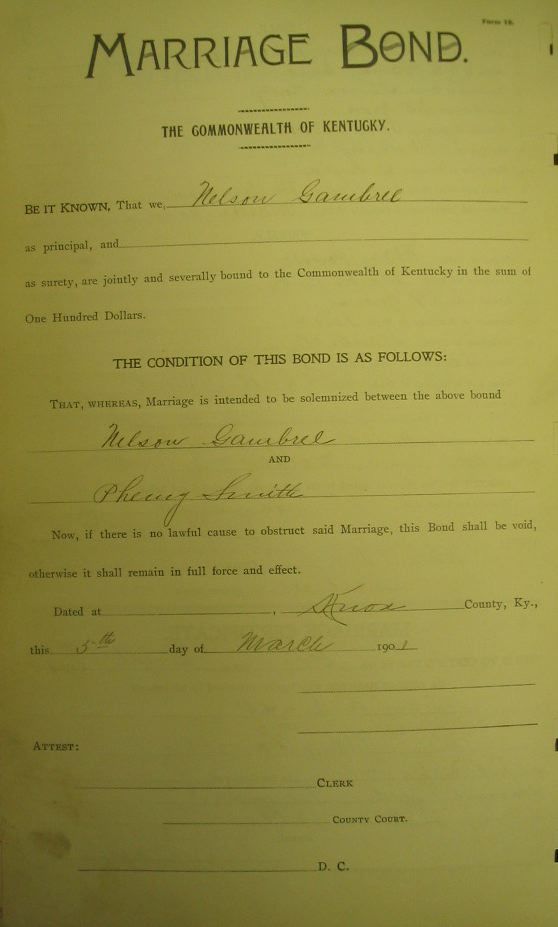 Form 18.
MARRIAGE BOND.
THE COMMONWEALTH OF KENTUCKY.
BE IT KNOWN, That we, Nelson Gambrel
as principal, and
as surety, are jointly and severally bound to the Commonwealth of Kentucky in the sum of
One Hundred Dollars.
THE CONDITION OF THIS BOND IS AS FOLLOWS:
THAT, WHEREAS, Marriage is intended to be solemnized between the above bound
Nelson Gambrel
AND
Pheny Smith
Now, if there is no lawful cause to obstruct said Marriage, this Bond shall be void,
otherwise it shall remain in full force and effect.
Dated at , Knox County, Ky.,
this 5th day of March 1901
ATTEST:
CLERK
COUNTY COURT.
D. C.